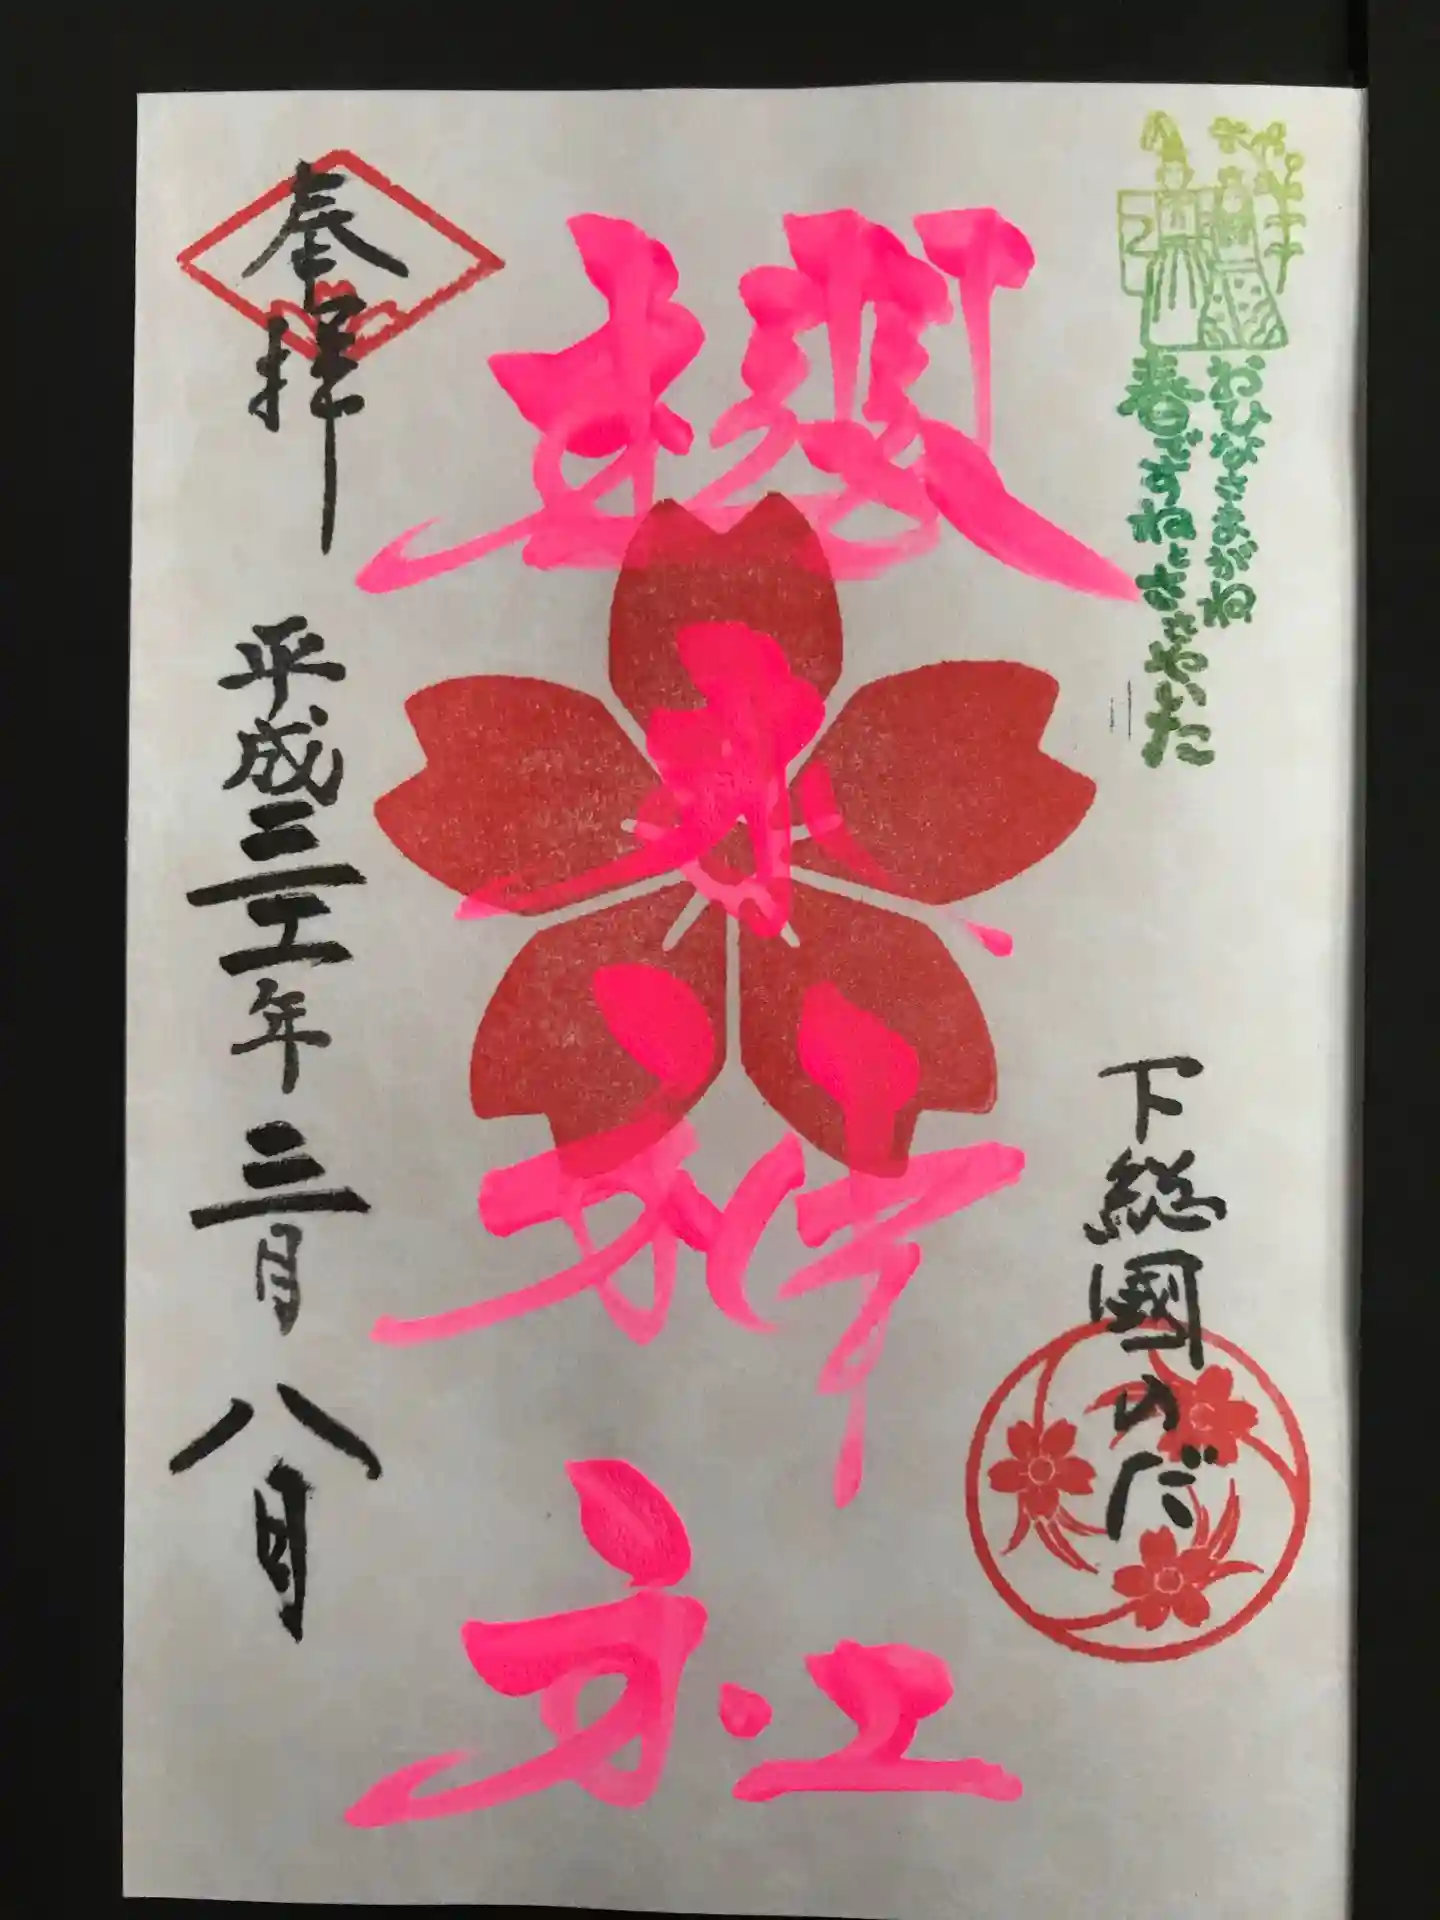 おひなさまがね
春ですねとささやいた
下総國のだ
櫻木神社
奉拝
平成三十一年三月八日